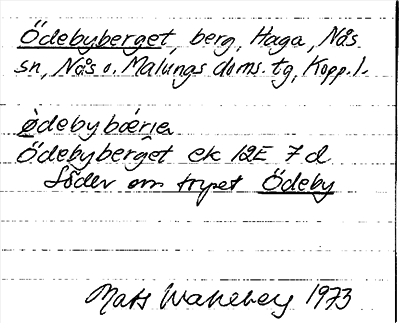 Ödebyberget, berg, Haga, Nås
sn, Nås o. Malungs doms. tg, Kopp. l.
ødebybærje
Ödebyberget ek 12E 7d
Söder om torpet Ödeby
Mats Wahlberg 1973